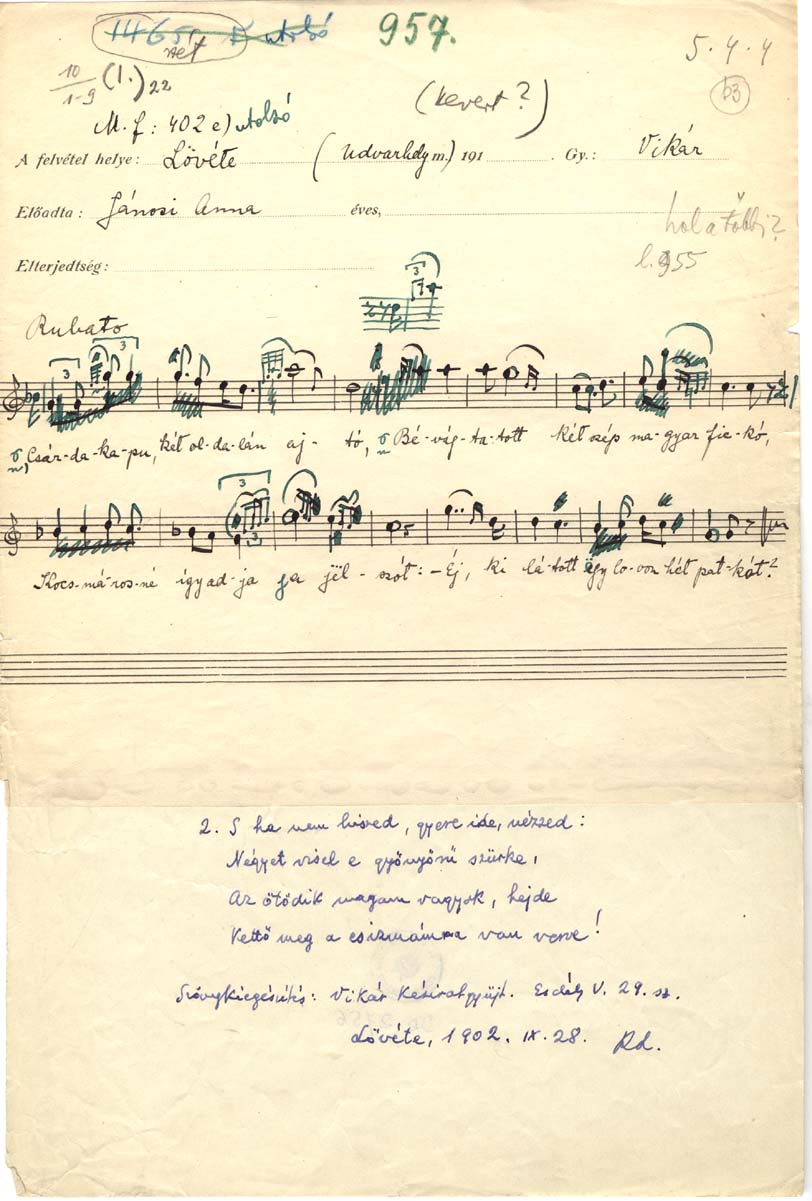 957.
5.4.4
10/1-9 (I.) 22
(kevert?)
63
M.f: 402 e) utolsó
A felvétel helye: Lövéte (Udvarhely m.) 191 . Gy.: Vikár
Előadta: Jánosi Anna éves,
hol a többi?
Elterjedtség:
l. 955
Rubato
Csár-da-ka-pu, két ol-da-lán aj-tó, Bé-vág-ta-tott két szép ma-gyar fic-kó,
Kocs-má-ros-né így ad-ja a jel-szót: – Éj, ki lá-tott egy lo-von hét pat-kót?
2. S ha nem hiszed, gyere ide, nézzed:
Négyet visel e gyönyörű szürke,
Az ötödik magam vagyok, hejde
Kettő meg a csizmámra van verve!
Szövegkiegészítés: Vikár Kéziratgyűjt. Erdély V. 29. sz.
Lövéte, 1902. IX. 28. Rd.